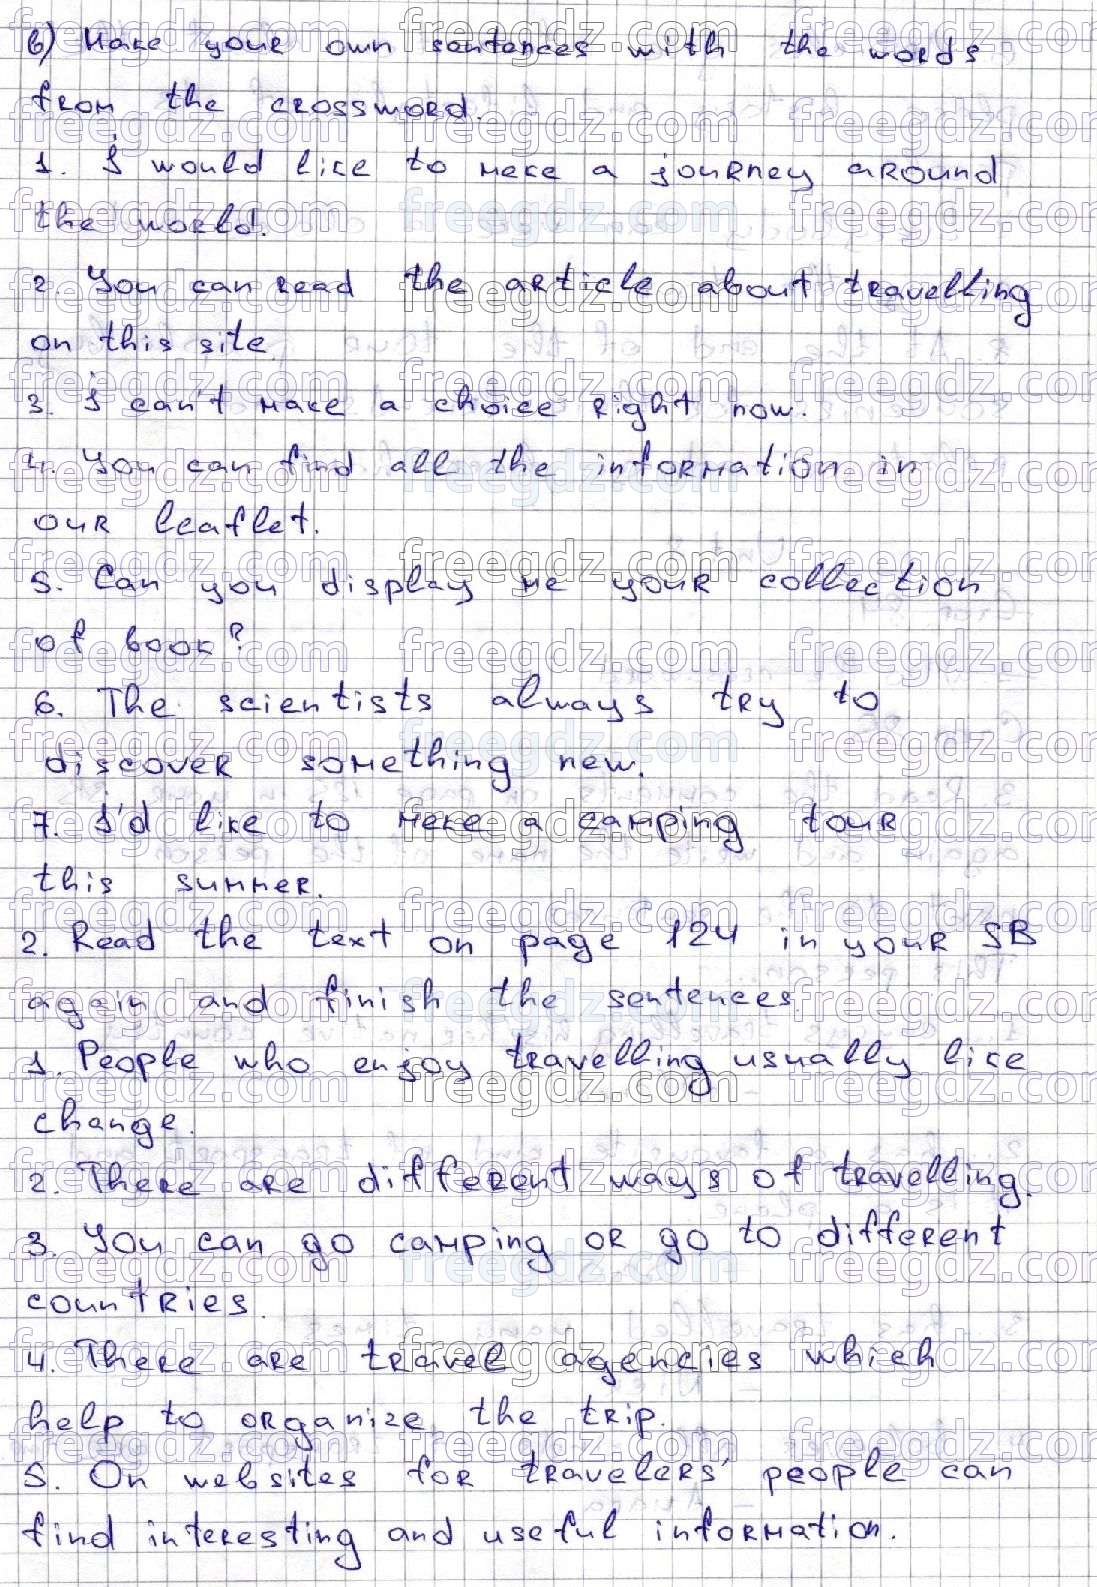 б) Make your own sentences with the words
from the crossword.
1. I would like to meke a journey around
the world.
2. You can read the article about travelling
on this site.
3. I can't make a choice right now.
4. You can find all the information in
our leaflet.
5. Can you display me your collection
of book?
6. The scientists always try to
discover something new.
7. I'd like to meke a camping tour
this summer.
2. Read the text on page 124 in your SB
again and finish the sentences.
1. People who enjoy travelling usually like
change.
2. There are different ways of travelling.
3. You can go camping or go to different
countries.
4. There are travel agencies which
help to organize the trip.
5. On websites for travelers' people can
find interesting and useful information.
freegdz.com